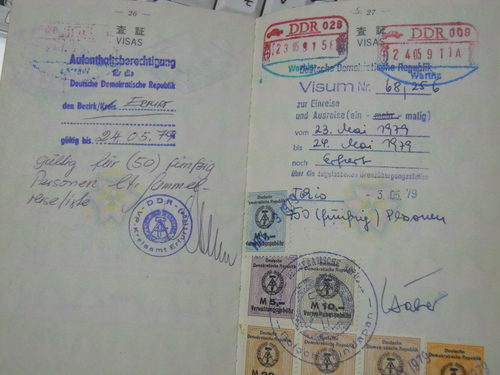 26
査証
VISAS
Aufenthaltsberechtigung
für die
Deutsche Demokratische Republik
den Bezirk/Kreis Erfurt
gültig bis 24.05.79
gültig für (50) fünfzig
Personen lt. Sammel-
reiseliste
DDR
27
査証
VISAS
DDR 029
23 05 9 15
Wartha
DDR 009
24 05 9 11 A
Wartha
Deutsche Demokratische Republik
Visum Nr. 68,256
zur Einreise
und Ausreise (ein - mehr - malig)
vom 23. Mai 1979
bis 24. Mai 1979
nach Erfurt
über die zugelassenen Grenzübergangsstellen
Tokio - 3. 05. 79
50 (fünfzig) Personen
Deutsche
Demokratische Republik
M 1,-
Deutsche
Demokratische Republik
M 5,-
Verwaltungsgebühr
Deutsche
Demokratische Republik
M 10,-
Verwaltungsgebühr
Japan
Deutsche
Demokratische Republik
M 20,-
Deutsche
Demokratische Republik
Deutsche
Demokratische Republik
Deutsche
Demokratische Republik
1979